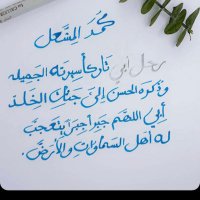 محمد المشعل
رحل أبي تاركاً سيرته الجميله
وذكره الحسن إلى جنات الخلد
أبي اللهم جبراً جبراً يتعجب
له أهل السماوات والأرض.